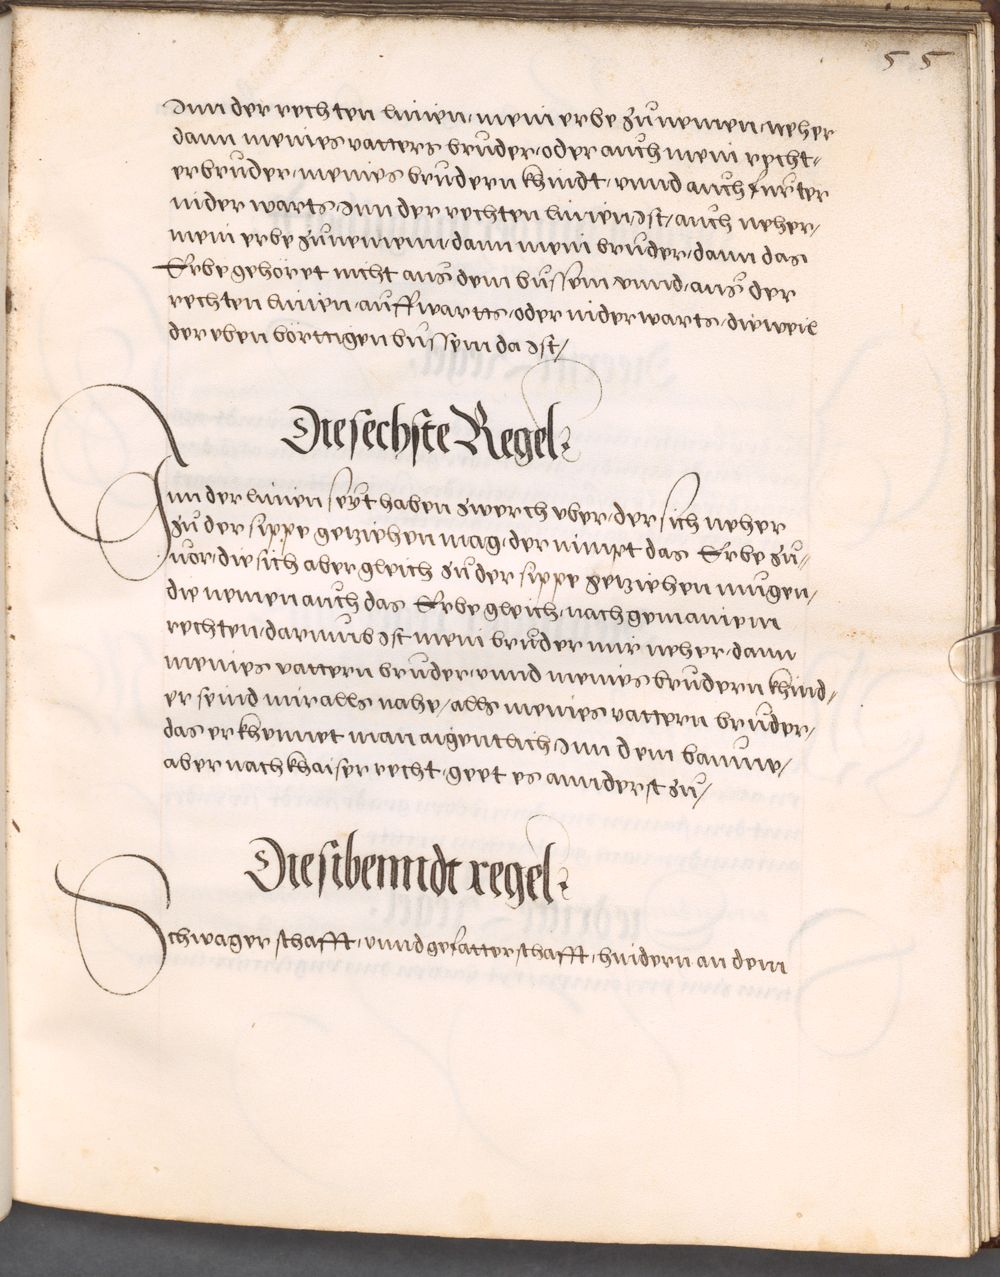 55
Inn der rechten linien, mein erbe zunemen, neher
dann meines vatters bruder, oder auch mein recht-
er bruder, meines brudern khindt, vnnd auch furter
niderwarts, Inn der rechten linien, Ist, auch neher,
mein erbe zunemenn, dann mein bruder, dann das
Erbe gehöret nicht aus dem bussem vnnd, aus der
rechten linien, auffwartts, oder niderwarts, dieweil
der eben börttigen bussem da Ist,
Die sechste Regel
Inn der linien seyt haben zwerch vber, der sich neher
zu der sippe geziehen mag, der nimpt das Erbe zu-
uor, die sich aber gleich zu der sippe geziehen mugen,
die nemen auch das Erbe gleich, nach gemainem
rechten, darumb Ist mein bruder mir neher, dann
meines vattern bruder, vnnd meines brudern khind-
er seind mir alls nahe, alls meines vattern bruder,
das erkhennet man aigentlich, Inn dem baume,
aber nach khaiser recht, geet es annderst zu,
Die sibenndt regel
Schwagerschafft, vnnd gefatterschafft, hindern an dem